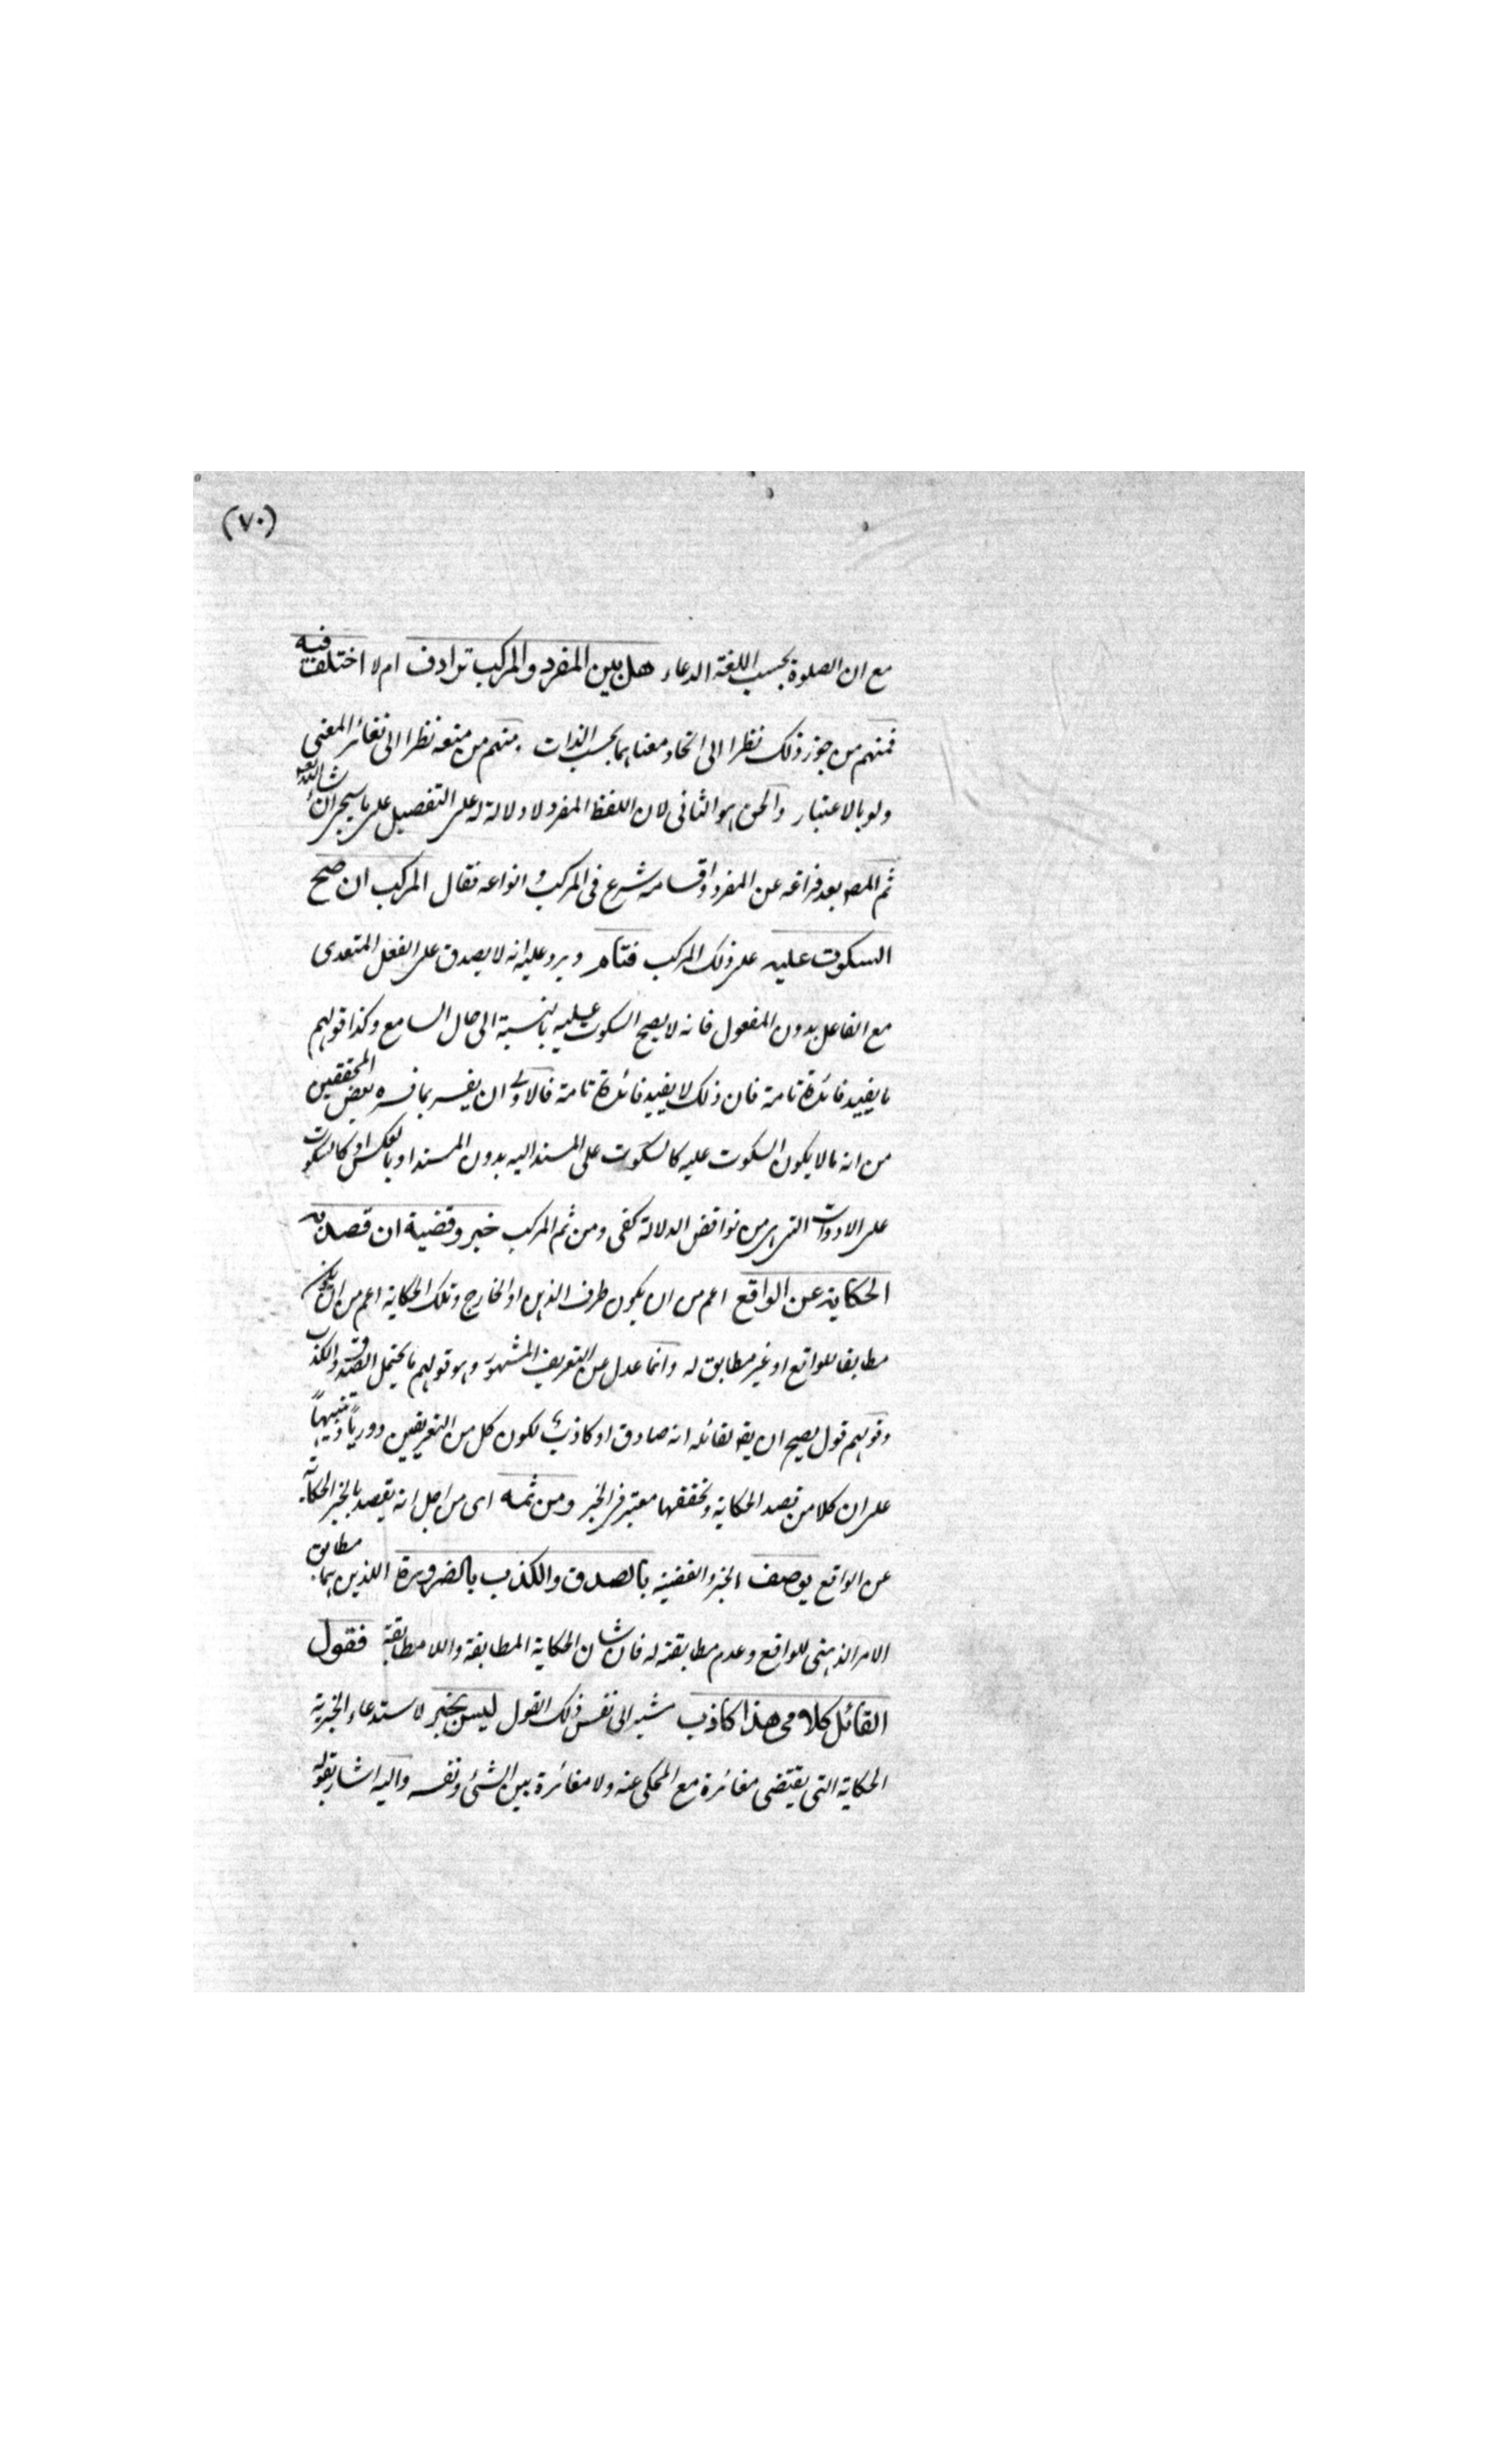 (٧٠)
مع ان الصلوة بحسب اللغة الدعاء هل بين المفرد والمركب ترادف ام لا اختلف فيه
فمنهم من جوز ذلك نظرا الى اتحاد معناهما بحسب الذات ومنهم من منعه نظرا الى تغائر المعنى
ولو بالاعتبار والحق هو الثانى لان اللفظ المفرد لا دلالة له على التفصيل على ما سيجئ ان شاء الله تعالى
ثم المص بعد فراغه عن المفرد واقسامه شرع فى المركب وانواعه فقال المركب ان صح
السكوت عليه على ذلك المركب فتام ويرد عليه انه لا يصدق على الفعل المتعدى
مع الفاعل بدون المفعول فانه لا يصح السكوت عليه بالنسبة الى حال السامع وكذا قولهم
ما يفيد فائدة تامة فان ذلك لا يفيد فائدة تامة فالاولى ان يفسر بما فسره بعض المحققين
من انه ما لا يكون السكوت عليه كالسكوت على المسند اليه بدون المسند او بالعكس او كالسكوت
على الادوات التى هى من نواقض الدلالة كفى ومن ثم المركب خبر وقضية ان قصد به
الحكاية عن الواقع اعم من ان يكون ظرف الذهن او الخارج وتلك الحكاية اعم من ان يكون
مطابقا للواقع او غير مطابق له وانما عدل عن التعريف المشهور وهو قولهم ما يحتمل الصدق والكذب
وقولهم قول يصح ان يقه لقائله انه صادق او كاذب لكون كل من التعريفين دوريا وتنبيهاً
على ان كلا من قصد الحكاية وتحققها معتبر فى الخبر ومن ثمه اى من اجل انه يقصد بالخبر الحكاية
عن الواقع يوصف الخبر والقضية بالصدق والكذب بالضرورة اللذين هما مطابق
الامر الذهنى للواقع وعدم مطابقته له فان شان الحكاية المطابقة واللا مطابقة فقول
القائل كلامى هذا كاذب مشيرا الى نفس ذلك القول ليس بخبر لاستدعاء الخبرية
الحكاية التى يقتضى مغائرة مع المحكى عنه ولا مغائرة بين الشئ ونفسه واليه اشار بقوله